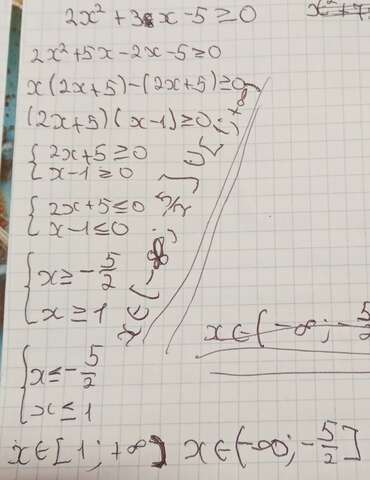 2x² + 3x - 5 ≥ 0
2x² + 5x - 2x - 5 ≥ 0
x(2x+5) - (2x+5) ≥ 0
(2x+5)(x-1) ≥ 0
{ 2x+5 ≥ 0
x-1 ≥ 0
{ 2x+5 ≤ 0
x-1 ≤ 0
{ x ≥ -5/2
x ≥ 1
{ x ≤ -5/2
x ≤ 1
x∈(-∞; -5/2
x∈[1; +∞) x∈(-∞; -5/2]